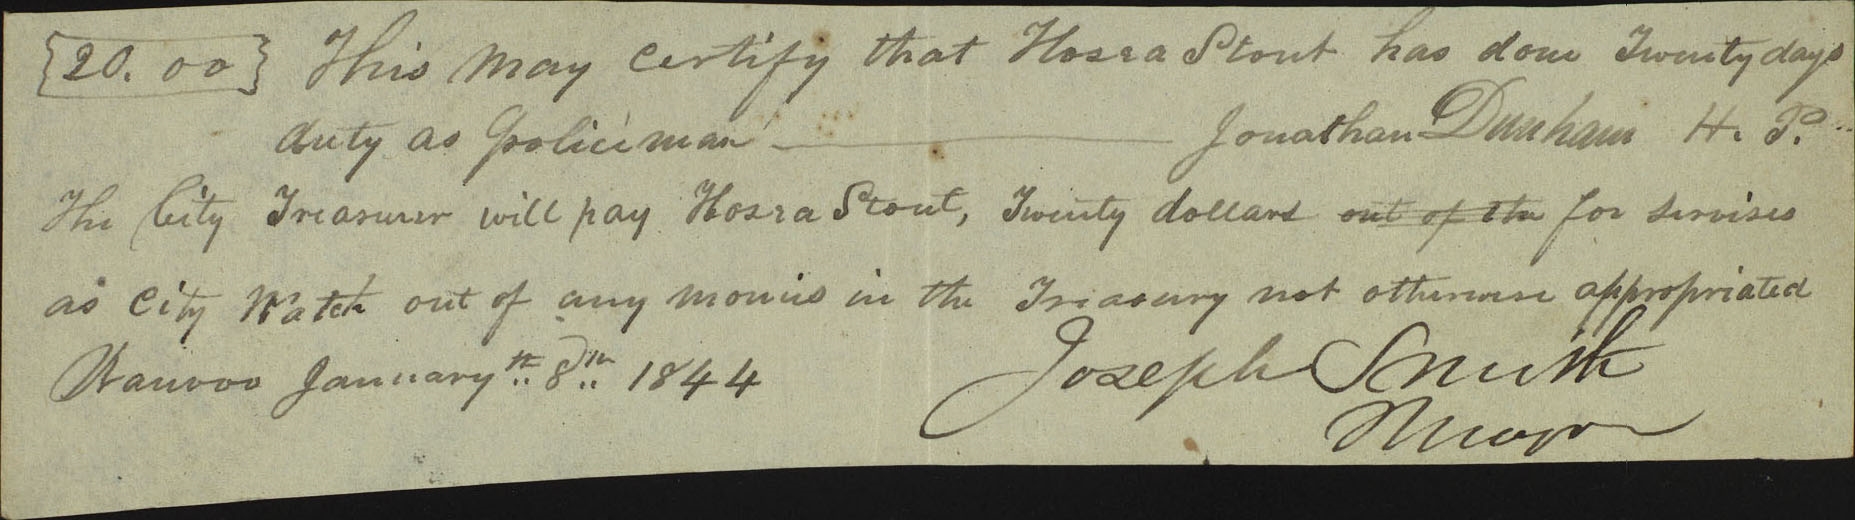 {20.00} This may certify that Hosea Stout has done Twenty days
duty as Policeman — Jonathan Dunham H. P.
The City Treasurer will pay Hosea Stout, Twenty dollars out of the for servises
as City Watch out of any monies in the Treasury not otherwise appropriated
Nauvoo January th 8th 1844 Joseph Smith
Mayor